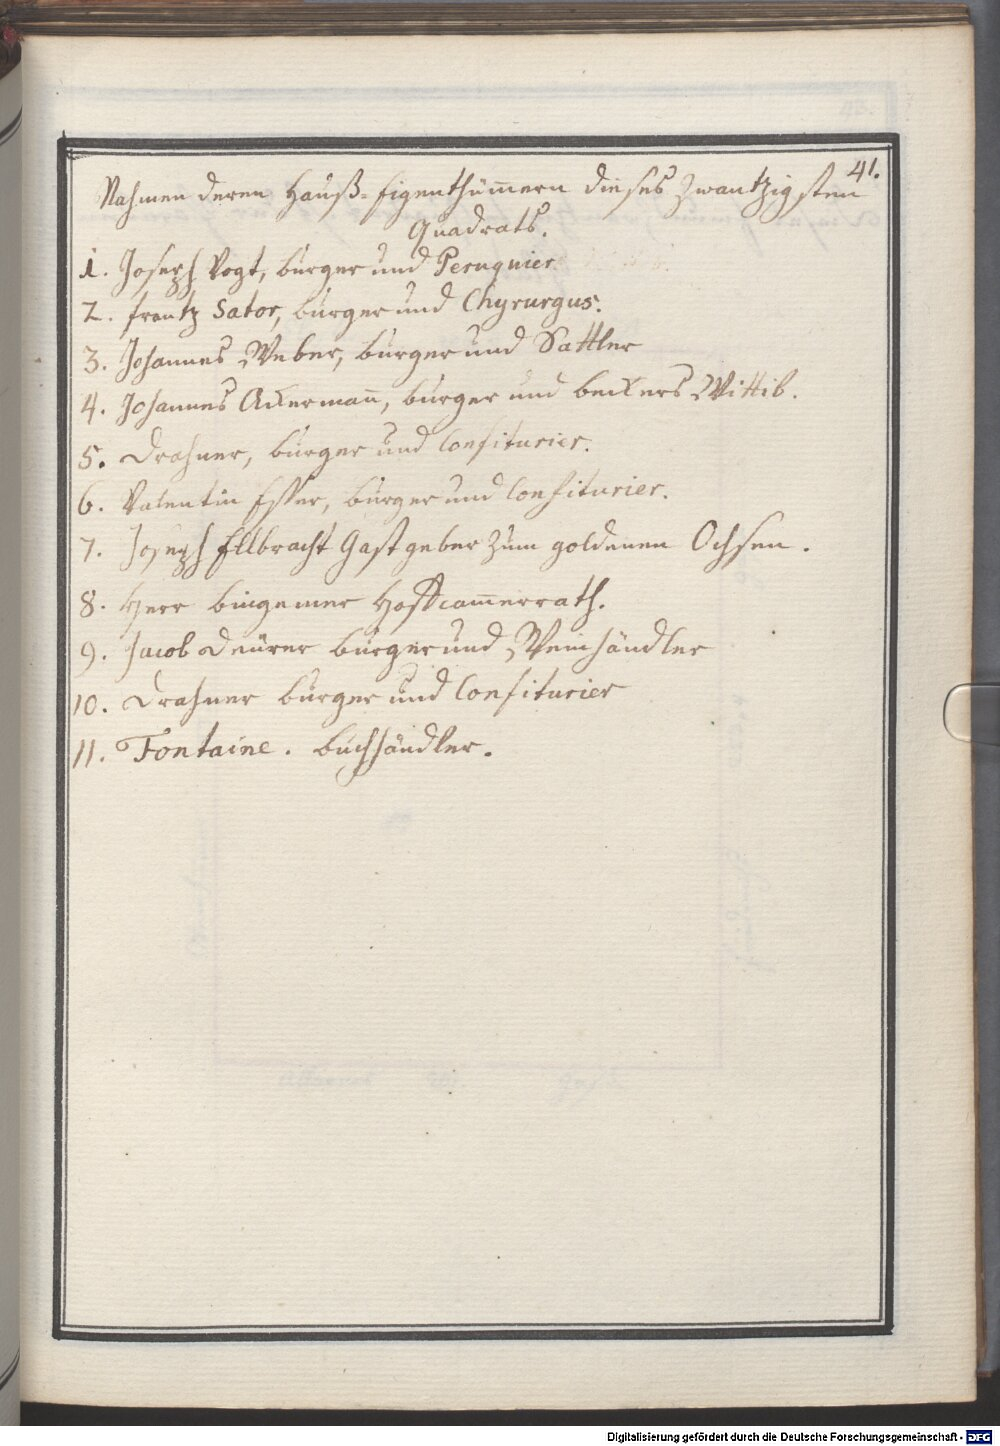 41.
Nahmen deren Hauß-Eigenthümern dieses Zwantzigsten
Quadrats.
1. Joseph Vogt, bürger und Peruquier
2. frantz Sator, bürger und Chyrurgus.
3. Johannes Weber, bürger und Sattler
4. Johannes Ackermañ, bürger und beckers Wittib.
5. Drahner, bürger und Confiturier.
6. Valentin Esser, bürger und Confiturier.
7. Joseph Ellbracht Gastgeber zum goldenen Ochsen.
8. Herr bingemer Hoffcam̄errath.
9. Jacob Deürer bürger und Weinhändler
10. Drahner bürger und Confiturier
11. Fontaine. buchhändler.
Digitalisierung gefördert durch die Deutsche Forschungsgemeinschaft - DFG